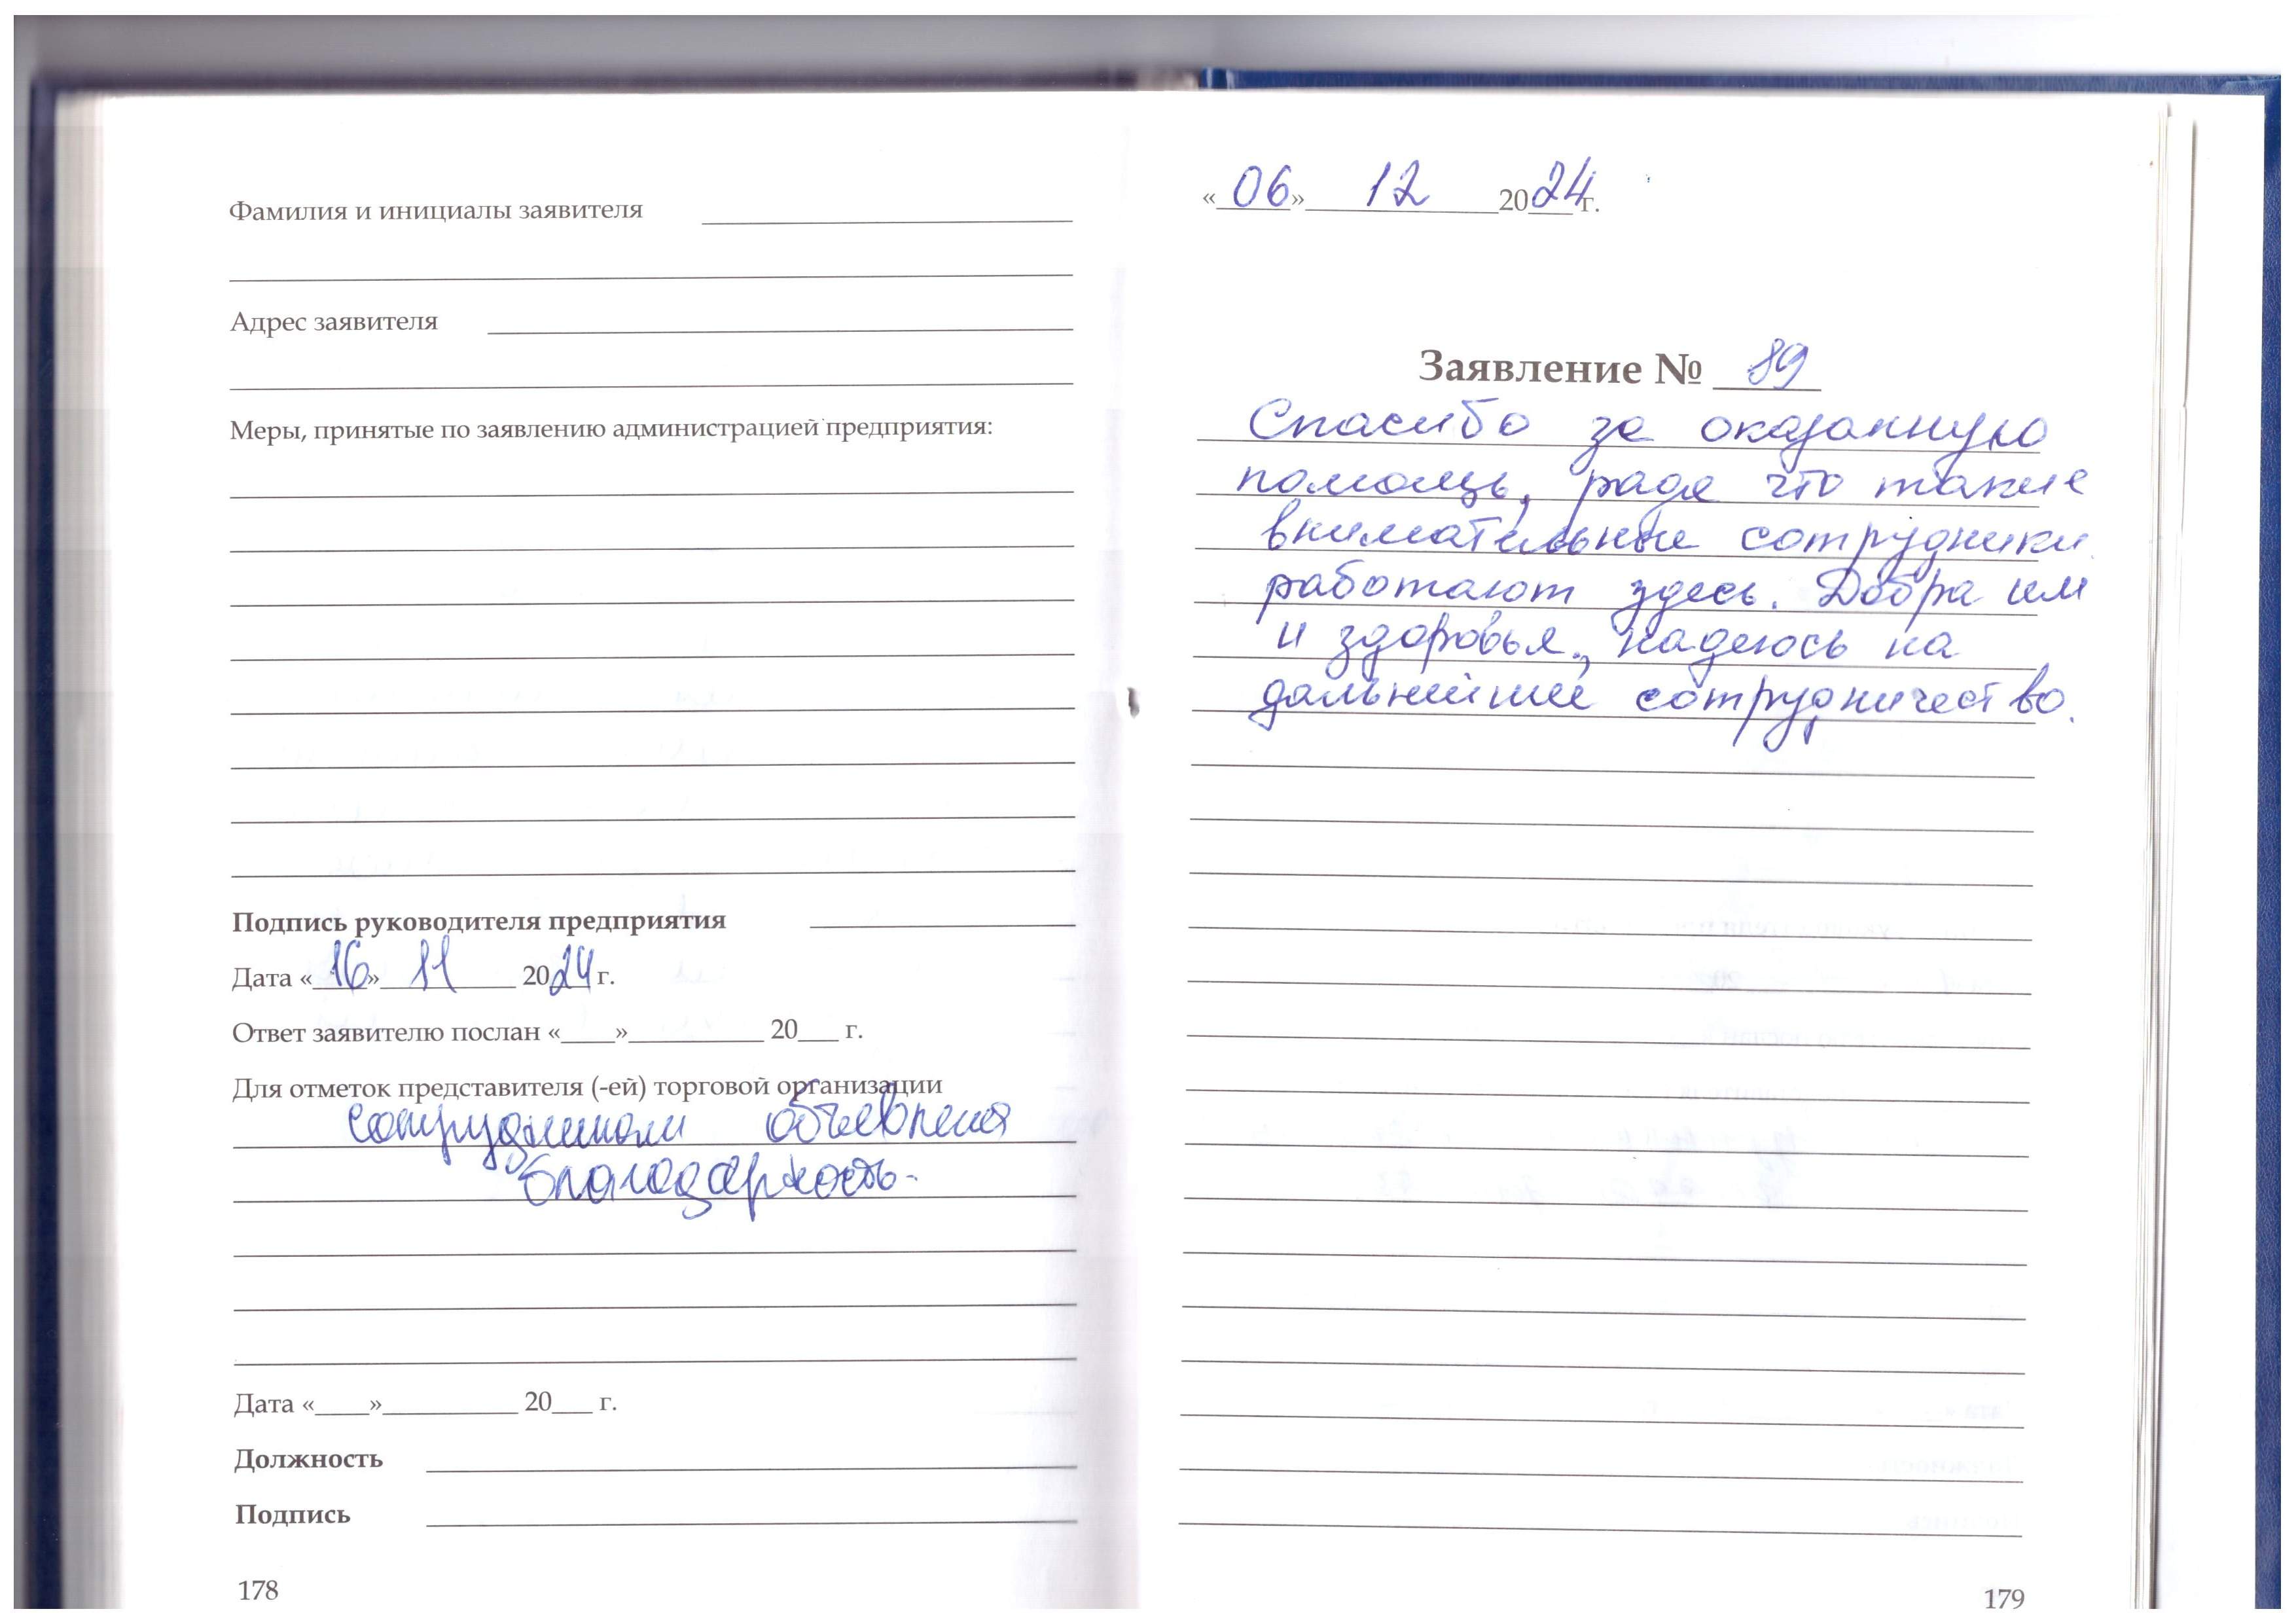 Фамилия и инициалы заявителя
Адрес заявителя
Меры, принятые по заявлению администрацией предприятия:
Подпись руководителя предприятия
Дата «16» 11 2024 г.
Ответ заявителю послан «____»__________ 20___ г.
Для отметок представителя (-ей) торговой организации
сотрудникам объявлена
благодарность.
Дата «____»__________ 20___ г.
Должность
Подпись
178
«06» 12 2024 г.
Заявление № 89
Спасибо за оказанную
помощь, рада что такие
внимательные сотрудники
работают здесь. Добра им
и здоровья., надеюсь на
дальнейшее сотрудничество.
179